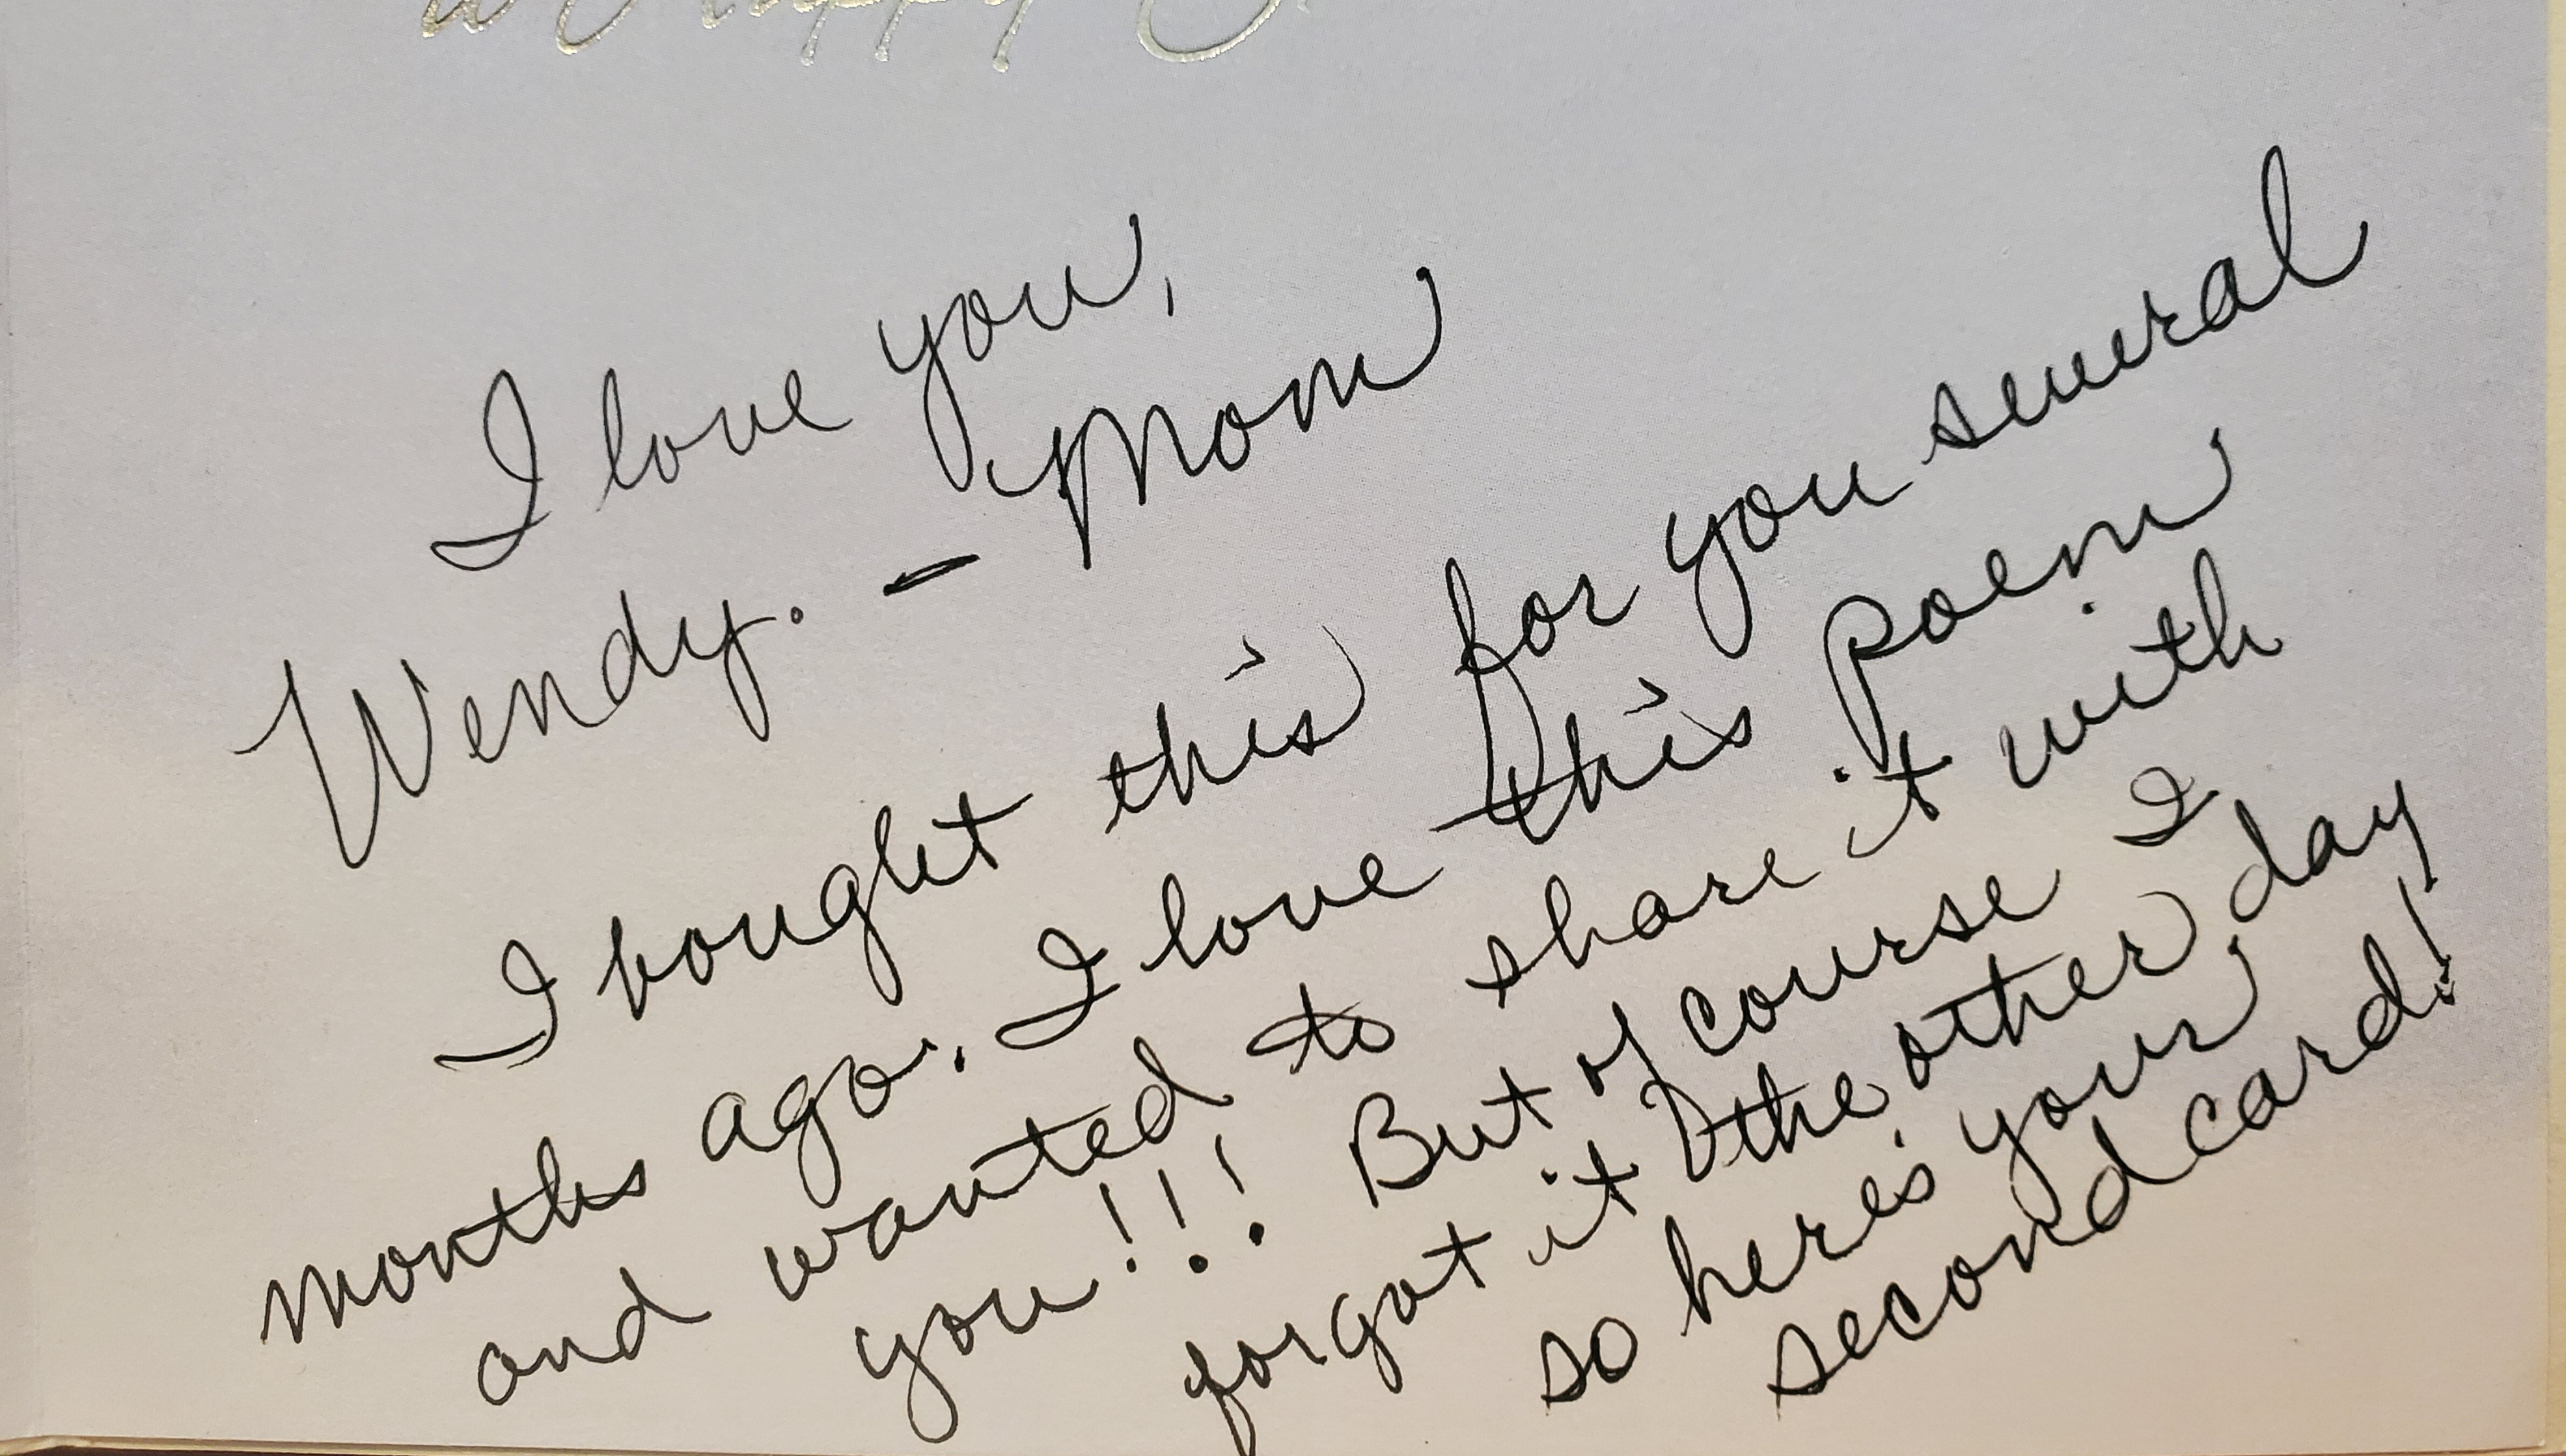 I love you,
Wendy. - Mom
I bought this for you several
months ago. I love this poem
and wanted to share it with
you!!! But of course I
forgot it the other day
so here's your
second card!